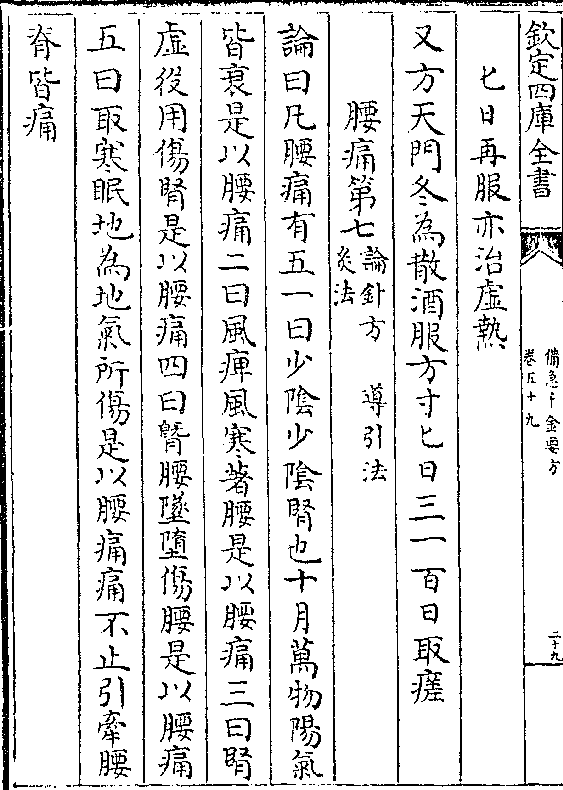 欽定四庫全書
備急千金要方
卷五十九
二十九
匕日再服亦治虛熱
又方天門冬為散酒服方寸匕日三一百日取瘥
腰痛第七論針方 導引法
灸法
論曰凡腰痛有五一曰少陰少陰腎也十月萬物陽氣
皆衰是以腰痛二曰風痺風寒著腰是以腰痛三曰腎
虛役用傷腎是以腰痛四曰䐴腰墜墮傷腰是以腰痛
五曰取寒眠地為地氣所傷是以腰痛痛不止引牽腰
脊皆痛